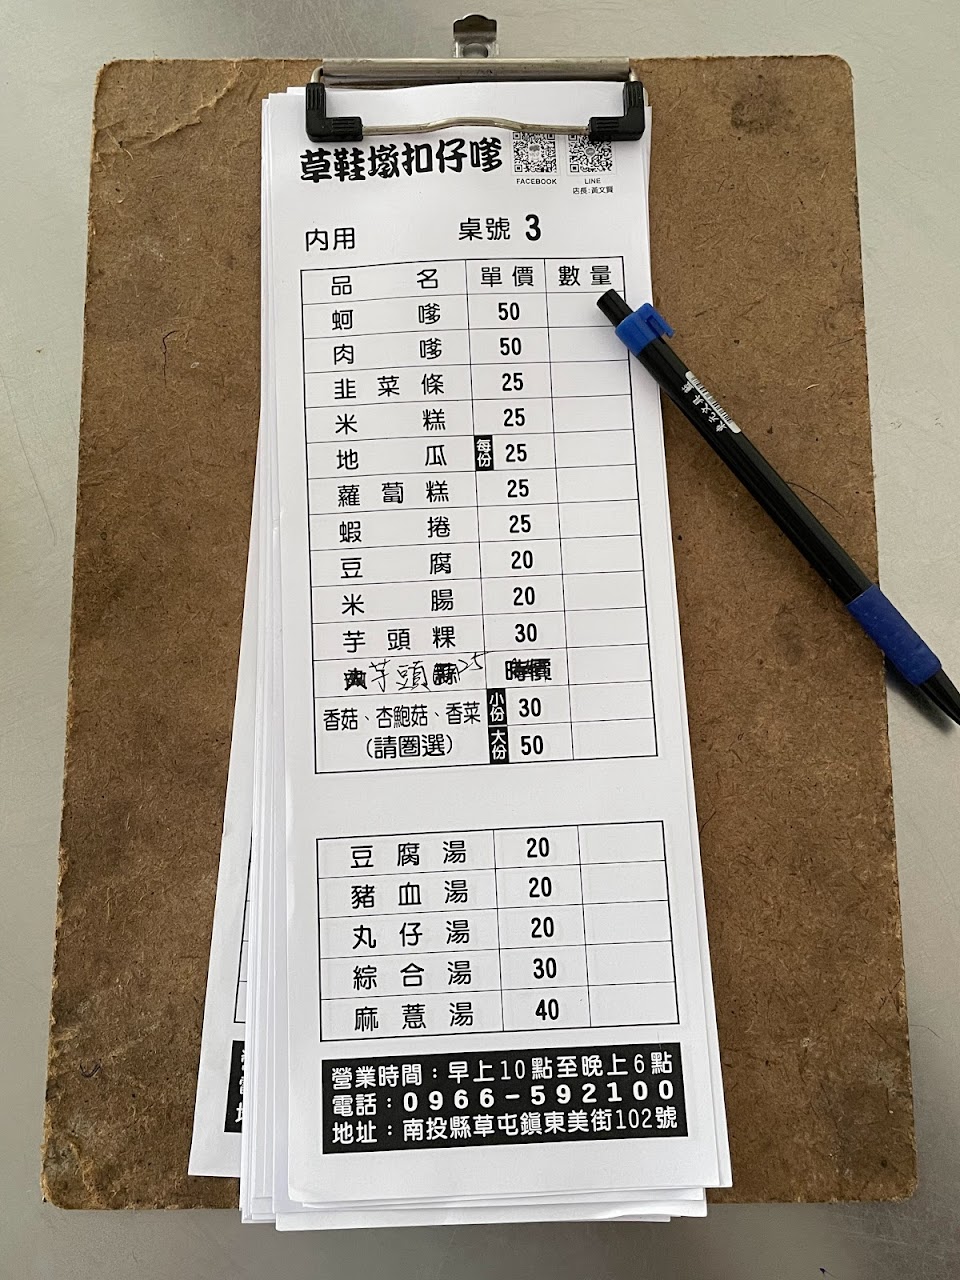 草鞋墩扣仔嗲
FACEBOOK
LINE
店長:黃文賢
內用 桌號 3
品名 單價 數量
蚵嗲 50
肉嗲 50
韭菜條 25
米糕 25
地瓜 每份 25
蘿蔔糕 25
蝦捲 25
豆腐 20
米腸 20
芋頭粿 30
芋頭 25 時價
香菇、杏鮑菇、香菜 小份 30
(請圈選) 大份 50
豆腐湯 20
豬血湯 20
丸仔湯 20
綜合湯 30
麻薏湯 40
營業時間:早上10點至晚上6點
電話:0966-592100
地址:南投縣草屯鎮東美街102號